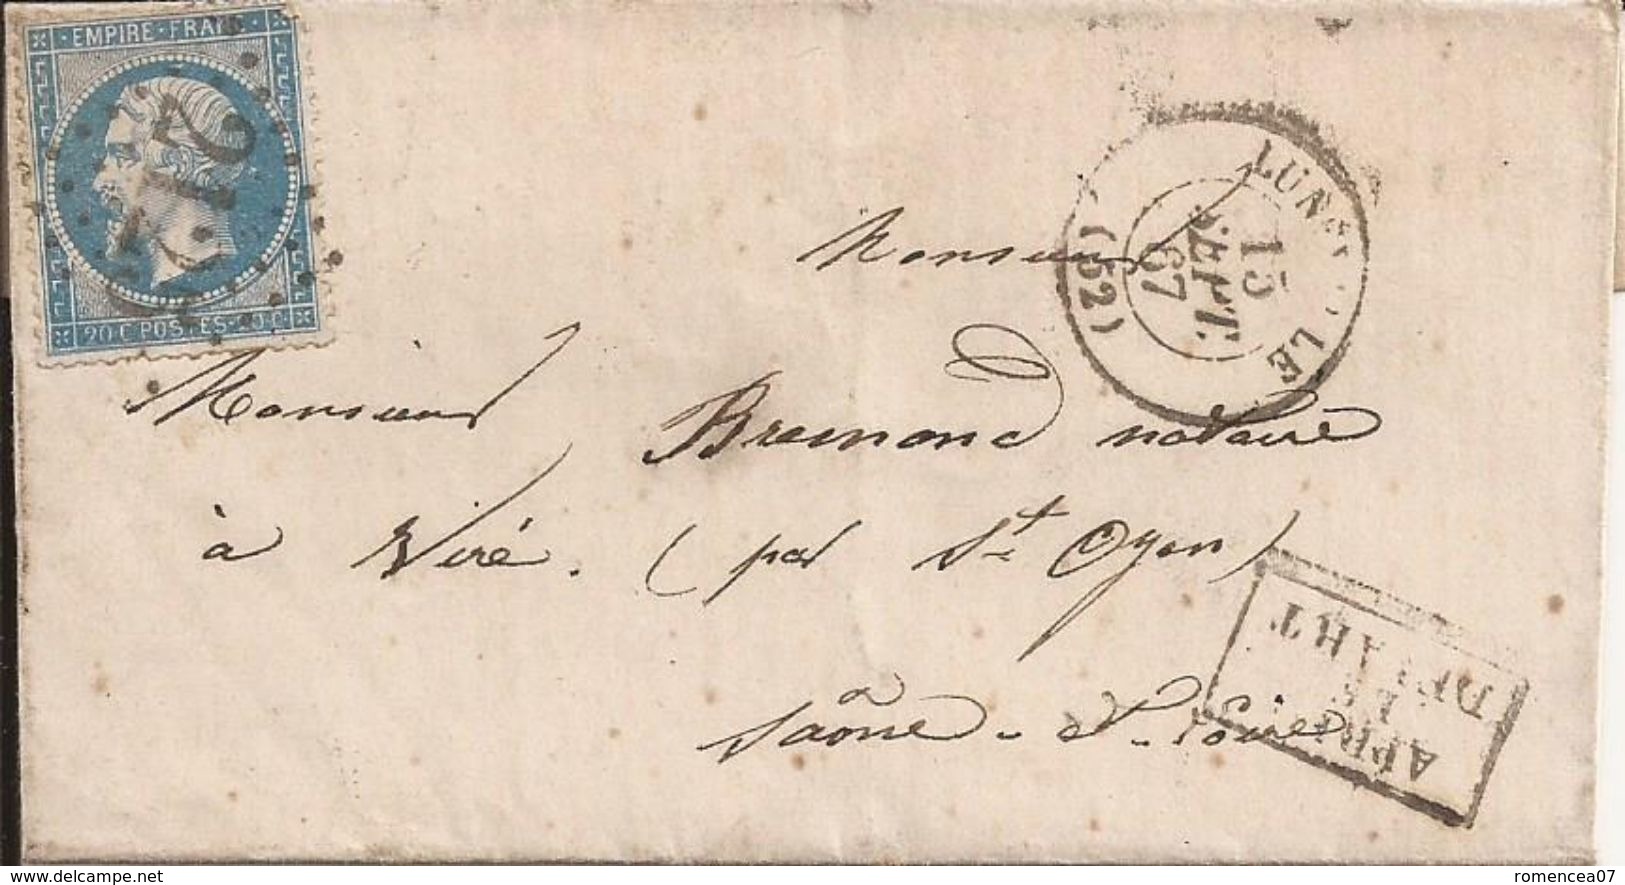 EMPIRE · FRANC
20 C POSTES 20 C
LUNEVILLE
15
SEPT.
67
(52)
Monsieur
Monsieur Bremond notaire
à Viré. (par St Oyen)
Saône-et-Loire
APRES
LE
DEPART
delcampe.net
romencea07